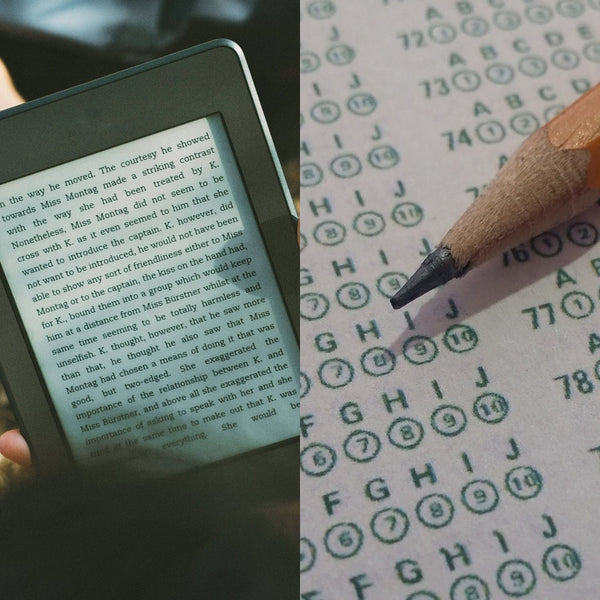 n the way he moved. The courtesy he showed
towards Miss Montag made a striking contrast
with the way she had been treated by K.
Nonetheless, Miss Montag did not seem to be
cross with K. as it even seemed to him that she
wanted to introduce the captain. K. however, did
not want to be introduced, he would not have been
able to show any sort of friendliness either to Miss
Montag or to the captain, the kiss on the hand had,
for K., bound them into a group which would keep
him at a distance from Miss Bürstner whilst at the
same time seeming to be totally harmless and
unselfish. K. thought, however, that he saw more
than that, he thought he also saw that Miss
Montag had chosen a means of doing it that was
good, but two-edged. She exaggerated the
importance of the relationship between K. and
Miss Bürstner, and above all she exaggerated the
importance of asking to speak with her and she
tried at the same time to make out that K. was
everything. She would be
A B C D
72 1 2 3 4 5
I J
A B C D E
73 1 2 3 4 5
I J
9 10
A B C
74 1 2
I J
8 9 10
H I J
8 9 10
76 1 2
G H I J
7 8 9 10
A
77 1
G H I J
6 7 8 9 10
A
78 1
F G H I J
6 7 8 9 10
F G H I J
6 7 8 9 10
F G H I J
8 9 10